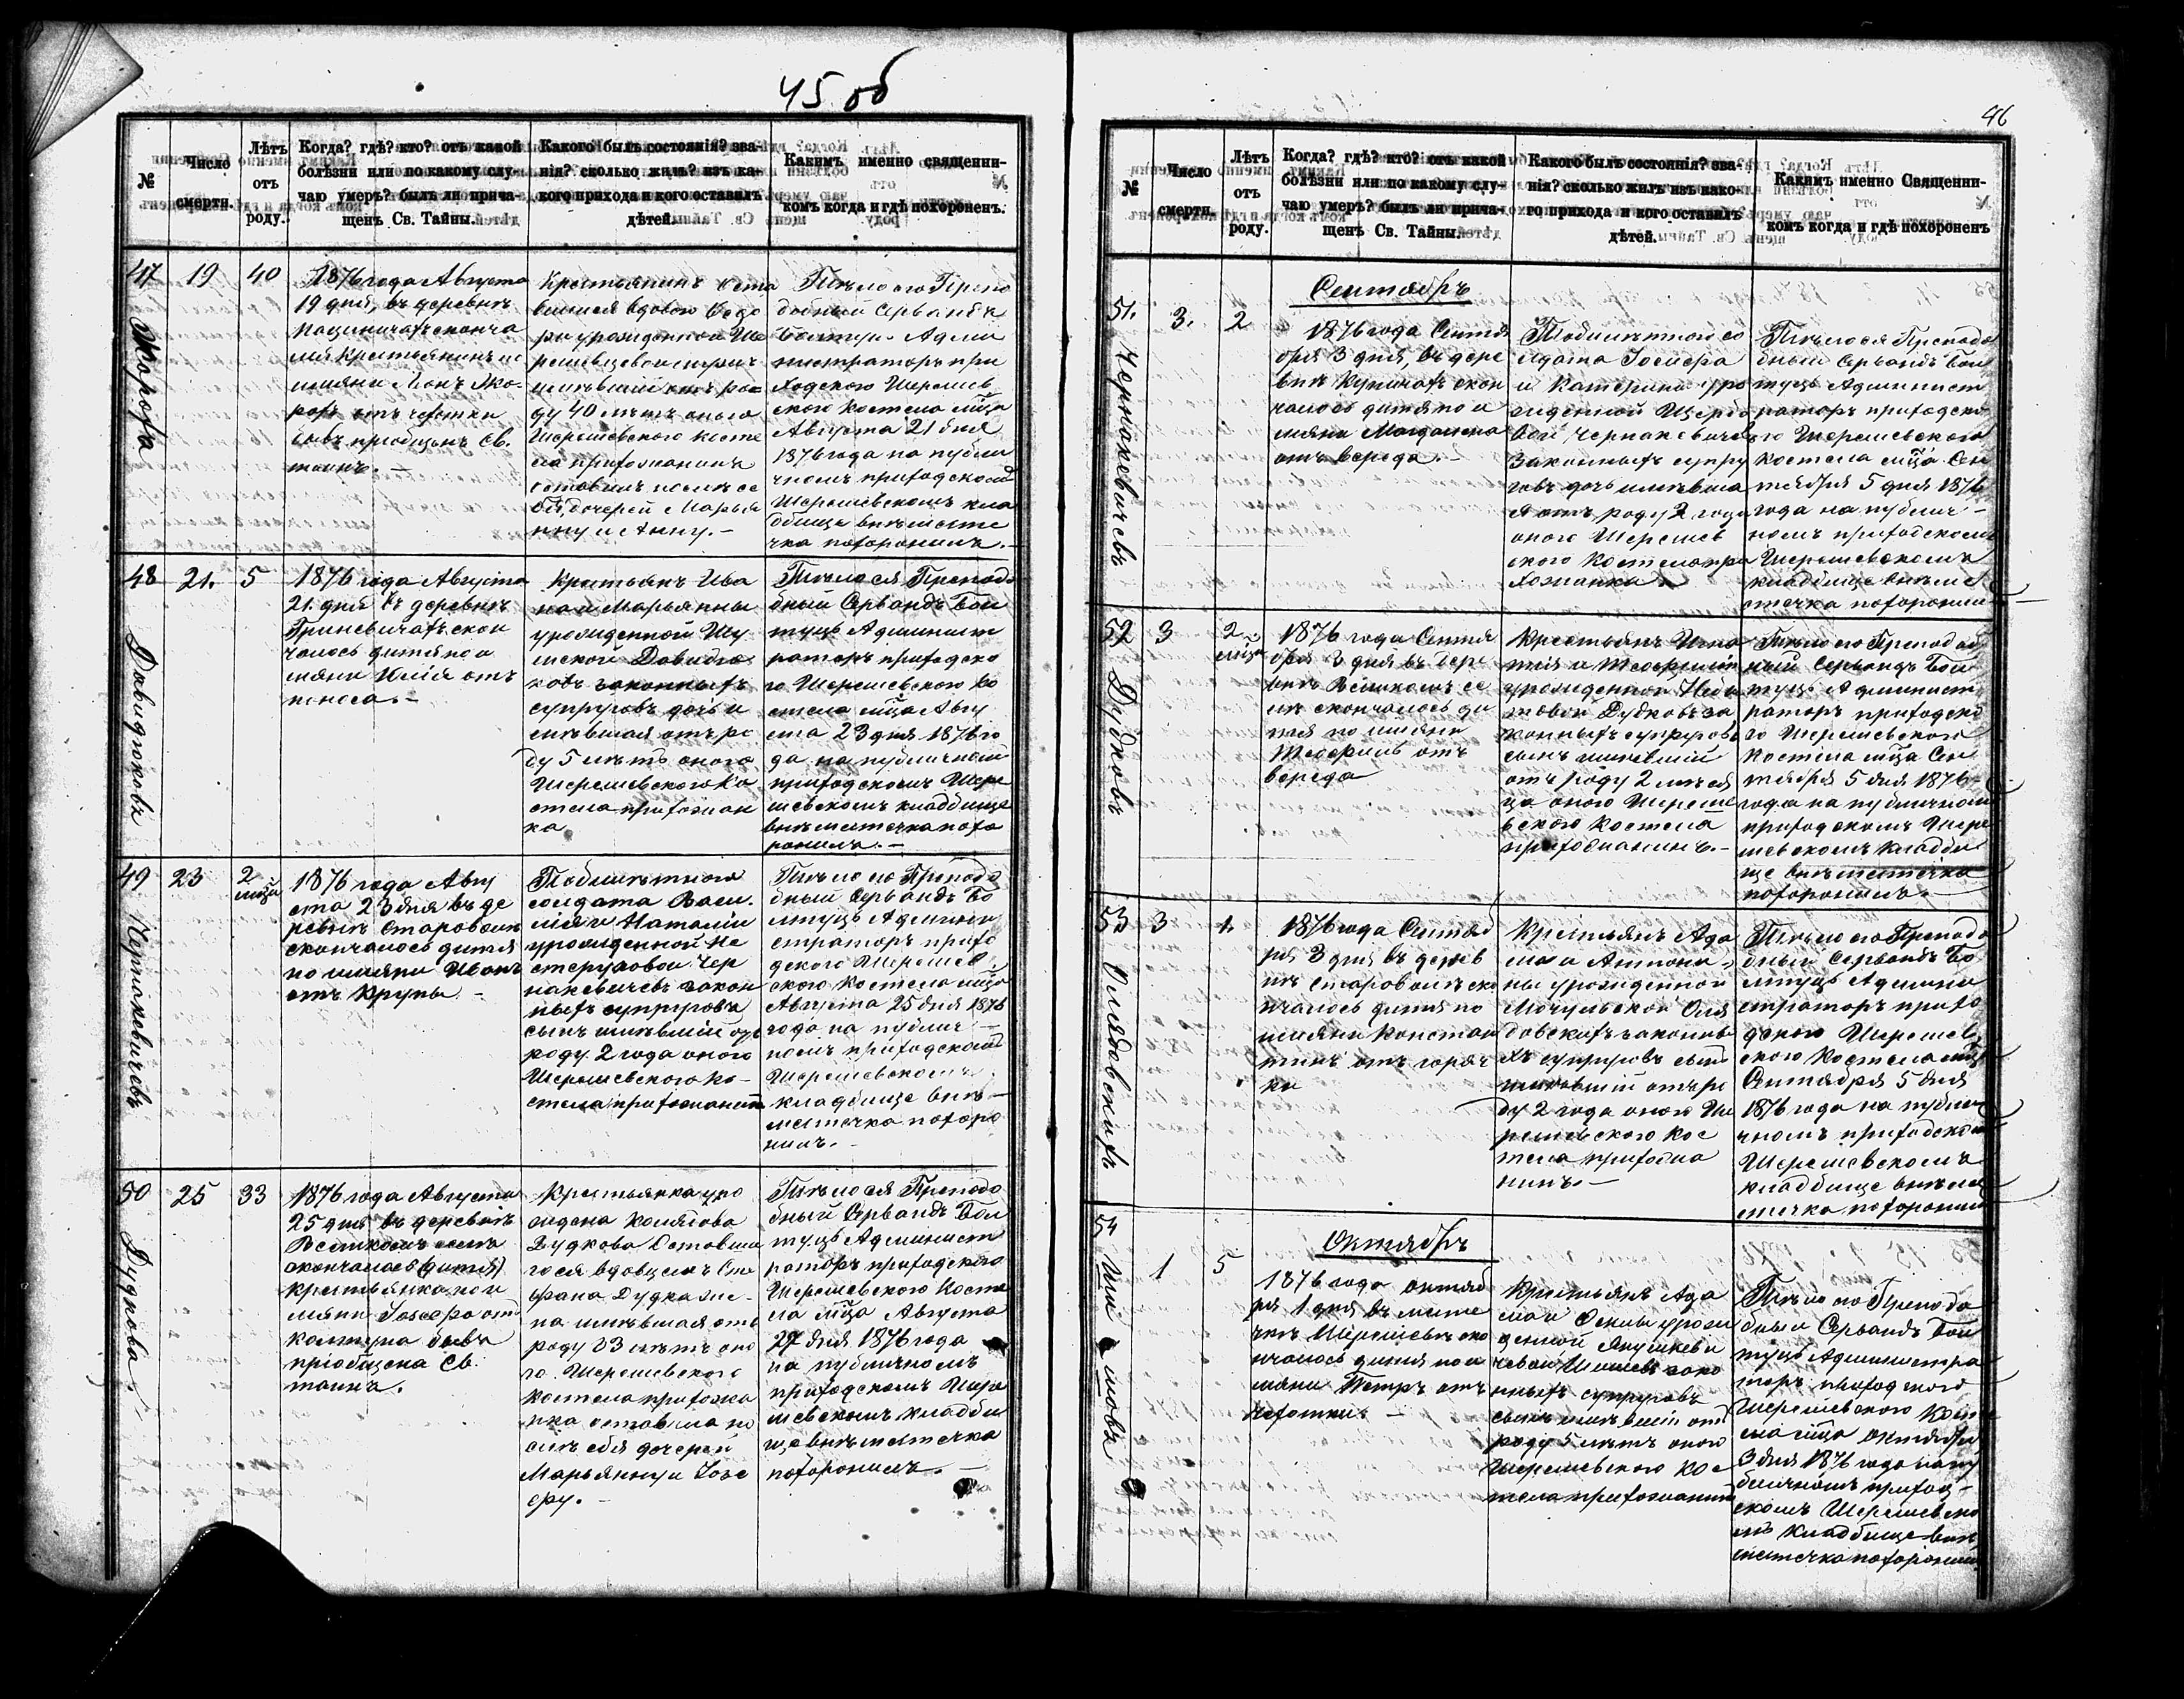 45 об
№
Число смерти.
Лѣтъ отъ роду.
Когда? гдѣ? кто? отъ какой
болѣзни или по какому слу-
чаю умеръ? былъ ли прича-
щенъ Св. Тайны.
Какого былъ состоянія? зва-
нія? сколько жилъ? изъ ка-
кого прихода и кого оставилъ
дѣтей.
Какимъ именно священни-
комъ когда и гдѣ похороненъ.
47
19
40
1876 года Августа
19 дня, въ деревнѣ
сконча
крестьянинъ
отъ чахотки
бывъ пріобщенъ Св.
таинъ. –
Крестьянинъ оста
вдовою
имѣвшій отъ ро
ду 40 лѣтъ оного
Шерешевского косте
ла прихожанинъ
оставилъ послѣ се
бя дочерей Марья
нну и Анну. –
Тѣло его Препо
добный Сервандъ
Болтуць Адми
нистраторъ при
ходского Шерешев
ского костела мѣца
Августа 21 дня
1876 года на публи
чномъ приходскомъ
Шерешевскомъ кла
дбище внѣ месте
чка похоронилъ. –
48
Давидюковъ
21.
5
1876 года Августа
21. дня въ деревнѣ
Гриневичахъ скон
чалось дитя по и
мяни Юлія отъ
поноса. –
Крестьянъ Ива
на и Марьянны
урожденной Шу
мской Давидю
ковъ законныхъ
супруговъ дочь и
мѣвшая отъ ро
ду 5 лѣтъ оного
Шерешевского ко
стела прихожан
ка
Тѣло ся Преподо
бный Сервандъ Бол
туць Админист
раторъ приходско
го Шерешевского ко
стела мѣца Авгу
ста 23 дня 1876 го
да на публичномъ
приходскомъ Шере
шевскомъ кладбище
внѣ местечка похо
ронилъ. –
49
Чернакевичевъ
23
2
мѣца
1876 года Авгу
ста 23 дня въ де
ревнѣ Староволѣ
скончалось дитя
по имяни Иванъ
отъ Крупы. –
солдата Васи
лія и Наталіи
урожденной Не
стеруковой Чер
накевичевъ закон
ныхъ супруговъ
сынъ имѣвшій отъ
роду 2 года оного
Шерешевского ко-
стела прихожанинъ
Тѣло его Преподо
бный Сервандъ Бо
лтуць Админи
страторъ прихо
дского Шерешев
ского Костела мѣца
Августа 25 дня 1876
года на публич –
номъ приходскомъ
Шерешевскомъ
кладбище внѣ –
местечка похоро
нилъ. –
50
Дудкова.
25
33
1876 года Августа
25 дня въ деревнѣ
Великомъ селѣ
скончалася (дитя)
крестьянка по и
мяни Іозефа отъ
колтуна бывъ
пріобщена Св.
таинъ.
Крестьянка уро
ждена
Дудкова Оставша
гося вдовцемъ Сте
фана Дудка же-
на имѣвшая отъ
роду 33 лѣтъ оно
го Шерешевского
костела прихожа
нка оставила по
слѣ себя дочерей
Марьянну и Іозе
фу. –
Тѣло ся Преподо
бный Сервандъ Бол
туць Админист
раторъ приходского
Шерешевского Косте
ла мѣца Августа
27 дня 1876 года
на публичномъ
приходскомъ Шере
шевскомъ кладби
ще внѣ местечка
похоронилъ. –
46
№
Число смерти
Лѣтъ отъ роду.
Когда? гдѣ? кто? отъ какой
болѣзни или по какому слу-
чаю умеръ? былъ ли прича-
щенъ Св. Тайны.
Какого былъ состоянія? зва-
нія? сколько жилъ изъ како-
го прихода и кого оставилъ
дѣтей.
Какимъ именно Священни-
комъ когда и гдѣ похороненъ
51.
Чернакевичевъ
3.
2
Сентябръ
1876 года Сентя
бря 3 дня, въ дере
внѣ Купичахъ скон
чалось дитя по и
мяни Магдалена
отъ вереда. –
солдата Іосифа
и Катерины уро
жденной Щербо
вой Чернакевичей
законныхъ супру
говъ дочь имѣвша
я отъ роду 2 года
оного Шерешев
ского костела при
хожанка
Тѣло ся Преподо
бный Сервандъ Бол
туць Админист
раторъ приходско
го Шерешевского
костела мѣца Сен
тября 5 дня 1876
года на публич –
номъ приходскомъ
Шерешевскомъ
кладбище внѣ ме
стечка похоронилъ –
52
Дудковъ
3
2
мѣца
1876 года Сентя
бря 3 дня въ дере
внѣ Великомъ се
лѣ скончалось ди
тя по имяни
Теофиль отъ
вереда
Крестьянъ Игна
тія и Теофиліи
урожденной
Дудковъ за
конныхъ супруговъ
сынъ имѣвшій
отъ роду 2 мѣся
ца оного Шереше
вского костела
прихожанинъ. –
Тѣло его Преподоб
ный Сервандъ Бол
туць Админист
раторъ приходско
го Шерешевского
Костела мѣца Сен
тября 5 дня 1876
года на публичномъ
приходскомъ Шере
шевскомъ кладби
ще внѣ местечка
похоронилъ. –
53
3
1876 года Сентяб
ря 3 дня въ дерев
нѣ Староволѣ ско
нчалось дитя по
имяни Констан
тинъ отъ горяч
ки
Крестьянъ Ада
ма и Антони
ны урожденной
Мочульской Оля
довскихъ законны
хъ супруговъ сынъ
имѣвшій отъ ро
ду 2 года оного Ше
решевского кос
тела прихожа
нинъ. –
Тѣло его Преподо
бный Сервандъ Бо
лтуць Админи
страторъ прихо
дского Шерешев
ского Костела мѣца
Сентября 5 дня
1876 года на публи
чномъ приходскомъ
Шерешевскомъ
кладбище внѣ ме
стечка похоронилъ
54
1
5
Октябръ
1876 года октяб
ря 1 дня въ месте
чкѣ Шерешевѣ ско
нчалось дитя по и
мяни Петръ отъ
чахотки. –
Крестьянъ Ада
ма и урож
денной Янушкеви
чевой зако
нныхъ супруговъ
сынъ имѣвшій отъ
роду 5 лѣтъ оного
Шерешевского кос
тела прихожанинъ
Тѣло его Преподо
бный Сервандъ Бол
туць Администра
торъ приходского
Шерешевского Косте
ла мѣца октября
3 дня 1876 года на пу
бличномъ приход –
скомъ Шерешевско
мъ кладбище внѣ
местечка похоронилъ